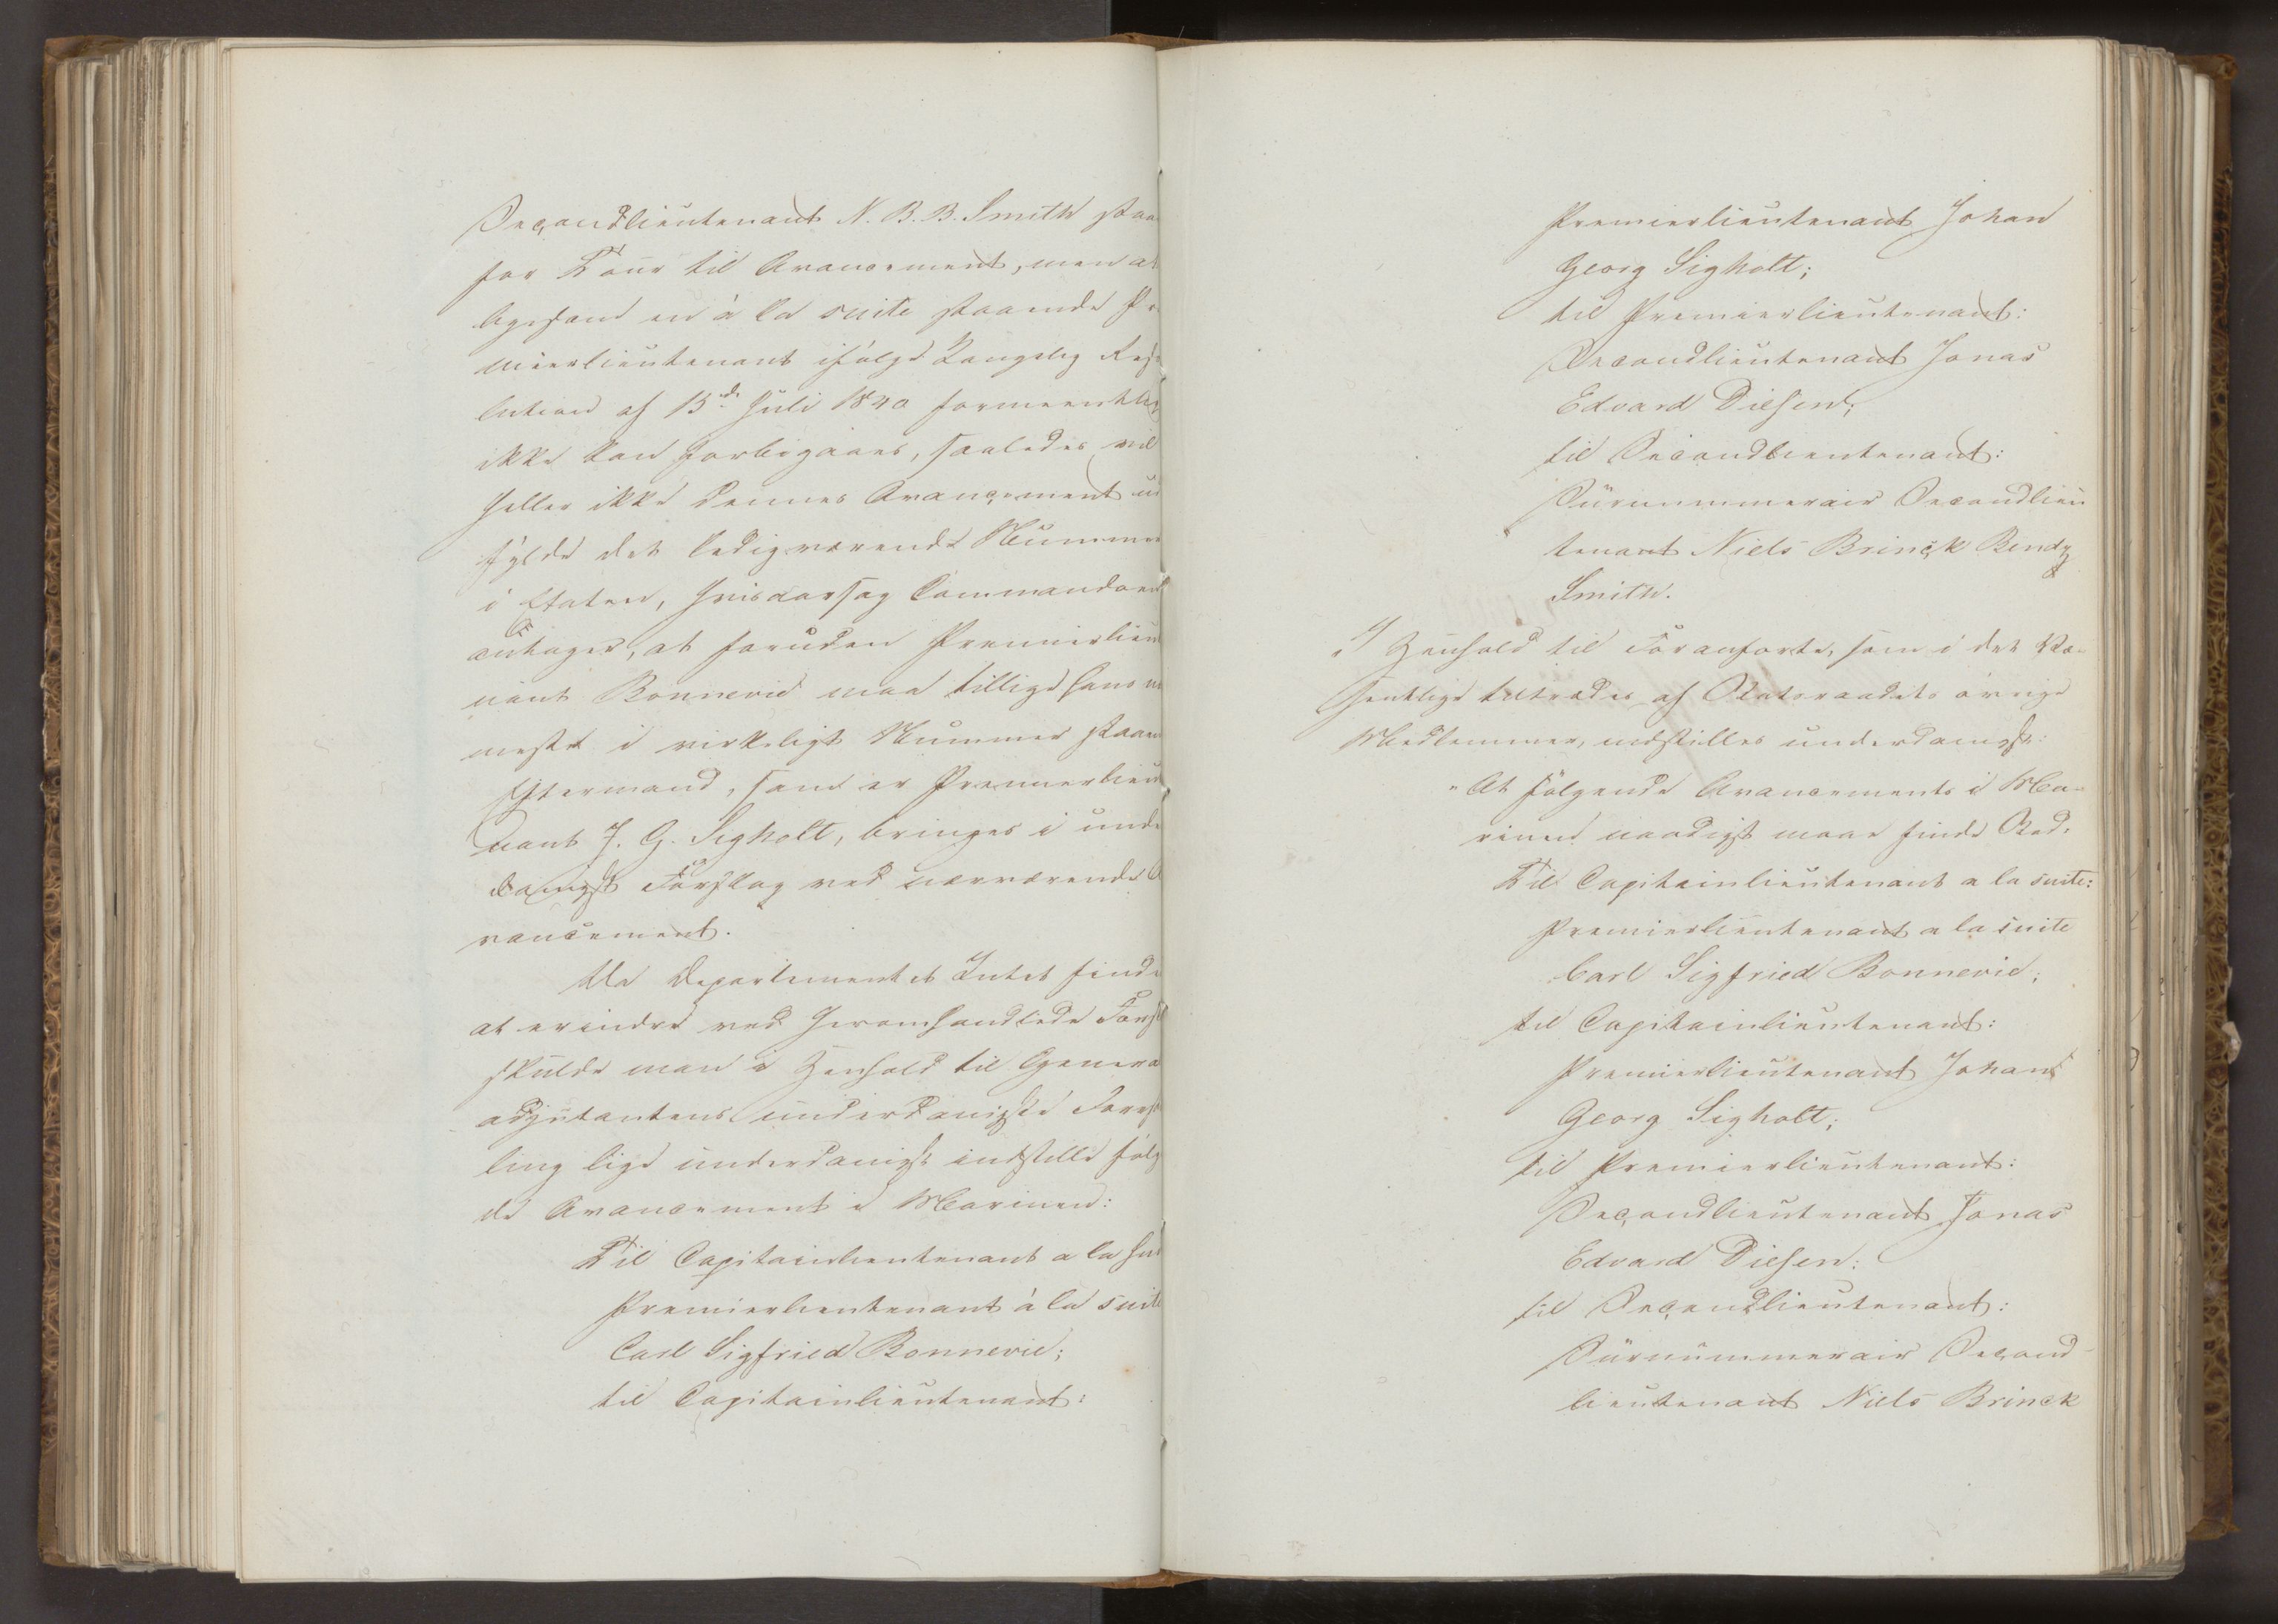 Secondlieutenant N. B. B. Smith staa
for Tour til Avancement, men at
ligesom en à la suite staaende Pr
mierlieutenant ifølge Kongelig Reso
lution af 15de Juli 1840 formeentlig
ikke kan forbigaaes, saaledes vil
heller ikke dennes Avancement ud
fylde det ledigværende Nummer
i Etaten, hvisaarsag Commandoen
antager, at foruden Premierlieut
nant Bonnevie maa tillige hans n
meste i virkeligt Nummer staaen
Eftermand, som er Premierlieut
nant J. G. Sigholt, bringes i unde
danigst Forslag ved nærværende A
vancement.
Da Departementet Intet finde
at erindre ved heromhandlede Forsl
skulde man i Henhold til Genera
adjutantens underdanigste Forest
ling lige underdanigst indstille følg
de Avancement i Marinen:
Til Capitainlieutenant a la sui
Premierlieutenant à la suite
Carl Sigfried Bonnevie;
til Capitainlieutenant:
Premierlieutenant Johan
Georg Sigholt;
til Premierlieutenant:
Secondlieutenant Jonas
Edvard Diesen;
til Secondlieutenant:
Surnummerair Secondlieu
tenant Niels Brinck Bendz
Smith.
"I Henhold til Foranførte, som i det Væ-
sentlige tiltrædes af Statsraadets øvrige
Medlemmer, indstilles underdanigst:
"At følgende Avancements i Ma-
rinen naadigst maae finde Sted:
Til Capitainlieutenant a la suite:
Premierlieutenant a la suite
Carl Sigfried Bonnevie;
til Capitainlieutenant:
Premierlieutenant Johan
Georg Sigholt;
til Premierlieutenant:
Secondlieutenant Jonas
Edvard Diesen:
til Secondlieutenant:
Surnummerair Second-
lieutenant Niels Brinck